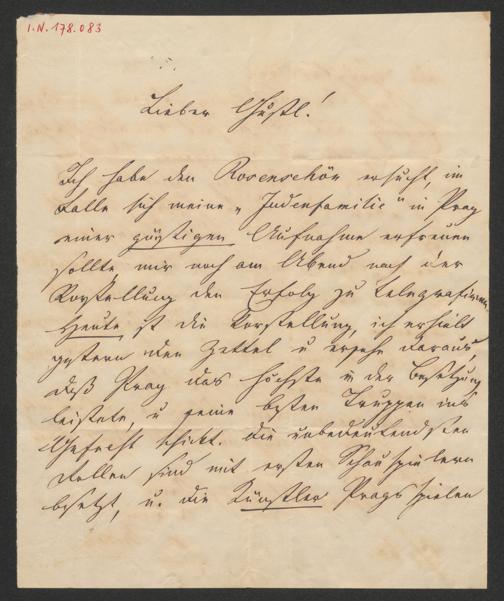 I.N. 178.083
Lieber Gustl!
Ich habe den Rosenschön ersucht, im
Falle sich meine „Judenfamilie" in Prag
einer günstigen Aufnahme erfreuen
sollte mir noch am Abend nach der
Vorstellung den Erfolg zu telegrafiren.
Heute ist die Vorstellung, ich erhielt
gestern den Zettel u ersehe daraus,
daß Prag das Höchste in der Besetzung
leistete, u seine besten Truppen ins
Gefecht schickt. Die unbedeutendsten
Rollen sind mit ersten Schauspielern
besetzt, u. die Künstler Prags spielen